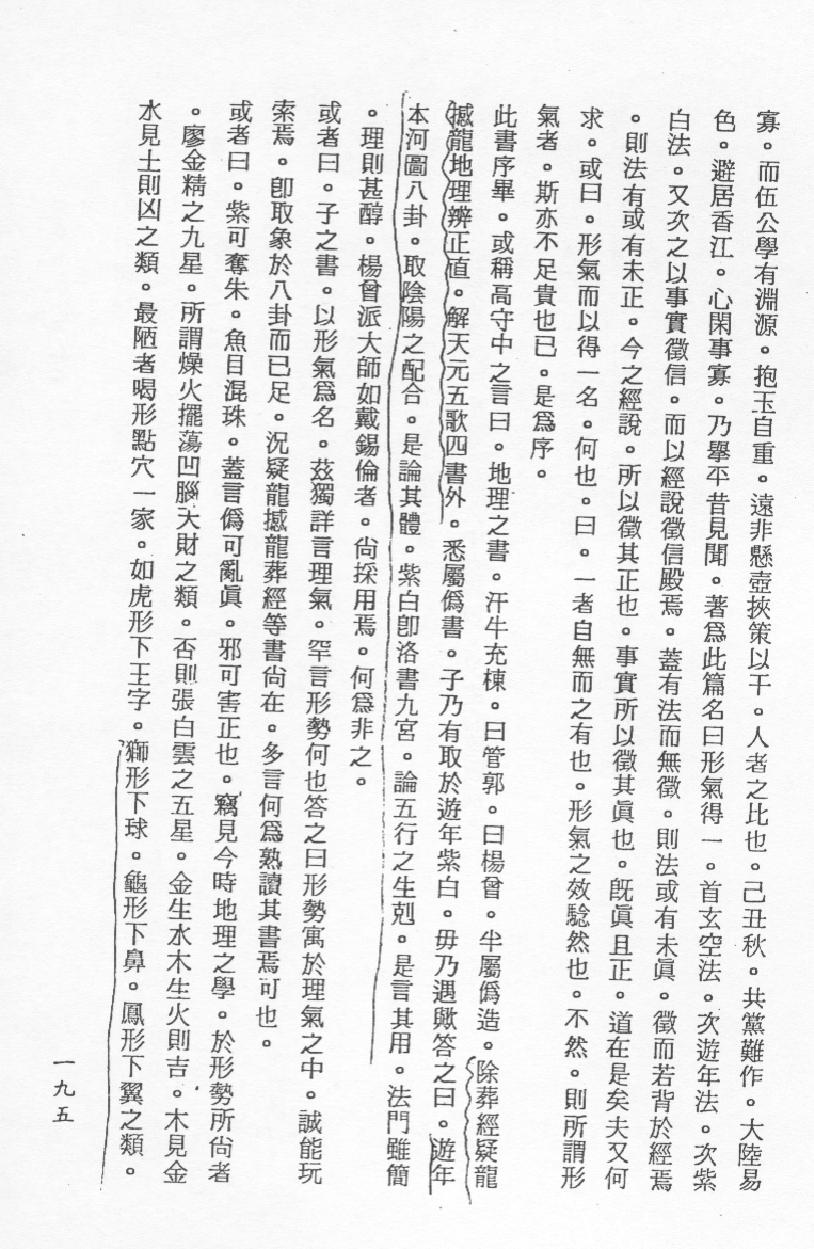 寡。而伍公學有淵源。抱玉自重。遠非懸壺挾策以干。人者之比也。己丑秋。共黨難作。大陸易
色。避居香江。心閑事寡。乃舉平昔見聞。著爲此篇名曰形氣得一。首玄空法。次遊年法。次紫
白法。又次之以事實徵信。而以經說徵信殿焉。蓋有法而無徵。則法或有未眞。徵而若背於經焉
。則法有或有未正。今之經說。所以徵其正也。事實所以徵其眞也。旣眞且正。道在是矣夫又何
求。或曰。形氣而以得一名。何也。曰。一者自無而之有也。形氣之效驗然也。不然。則所謂形
氣者。斯亦不足貴也已。是爲序。
此書序畢。或稱高守中之言曰。地理之書。汗牛充棟。曰管郭。曰楊曾。半屬僞造。除葬經疑龍
撼龍地理辨正直。解天元五歌四書外。悉屬僞書。子乃有取於遊年紫白。毋乃遇歟答之曰。遊年
本河圖八卦。取陰陽之配合。是論其體。紫白卽洛書九宮。論五行之生剋。是言其用。法門雖簡
。理則甚醇。楊曾派大師如戴錫倫者。尙採用焉。何爲非之。
或者曰。子之書。以形氣爲名。茲獨詳言理氣。罕言形勢何也答之曰形勢寓於理氣之中。誠能玩
索焉。卽取象於八卦而已足。況疑龍撼龍葬經等書尙在。多言何爲熟讀其書焉可也。
或者曰。紫可奪朱。魚目混珠。蓋言僞可亂眞。邪可害正也。竊見今時地理之學。於形勢所尙者
。廖金精之九星。所謂燥火擺蕩凹腦天財之類。否則張白雲之五星。金生水木生火則吉。木見金
水見土則凶之類。最陋者喝形點穴一家。如虎形下王字。獅形下球。龜形下鼻。鳳形下翼之類。
一九五